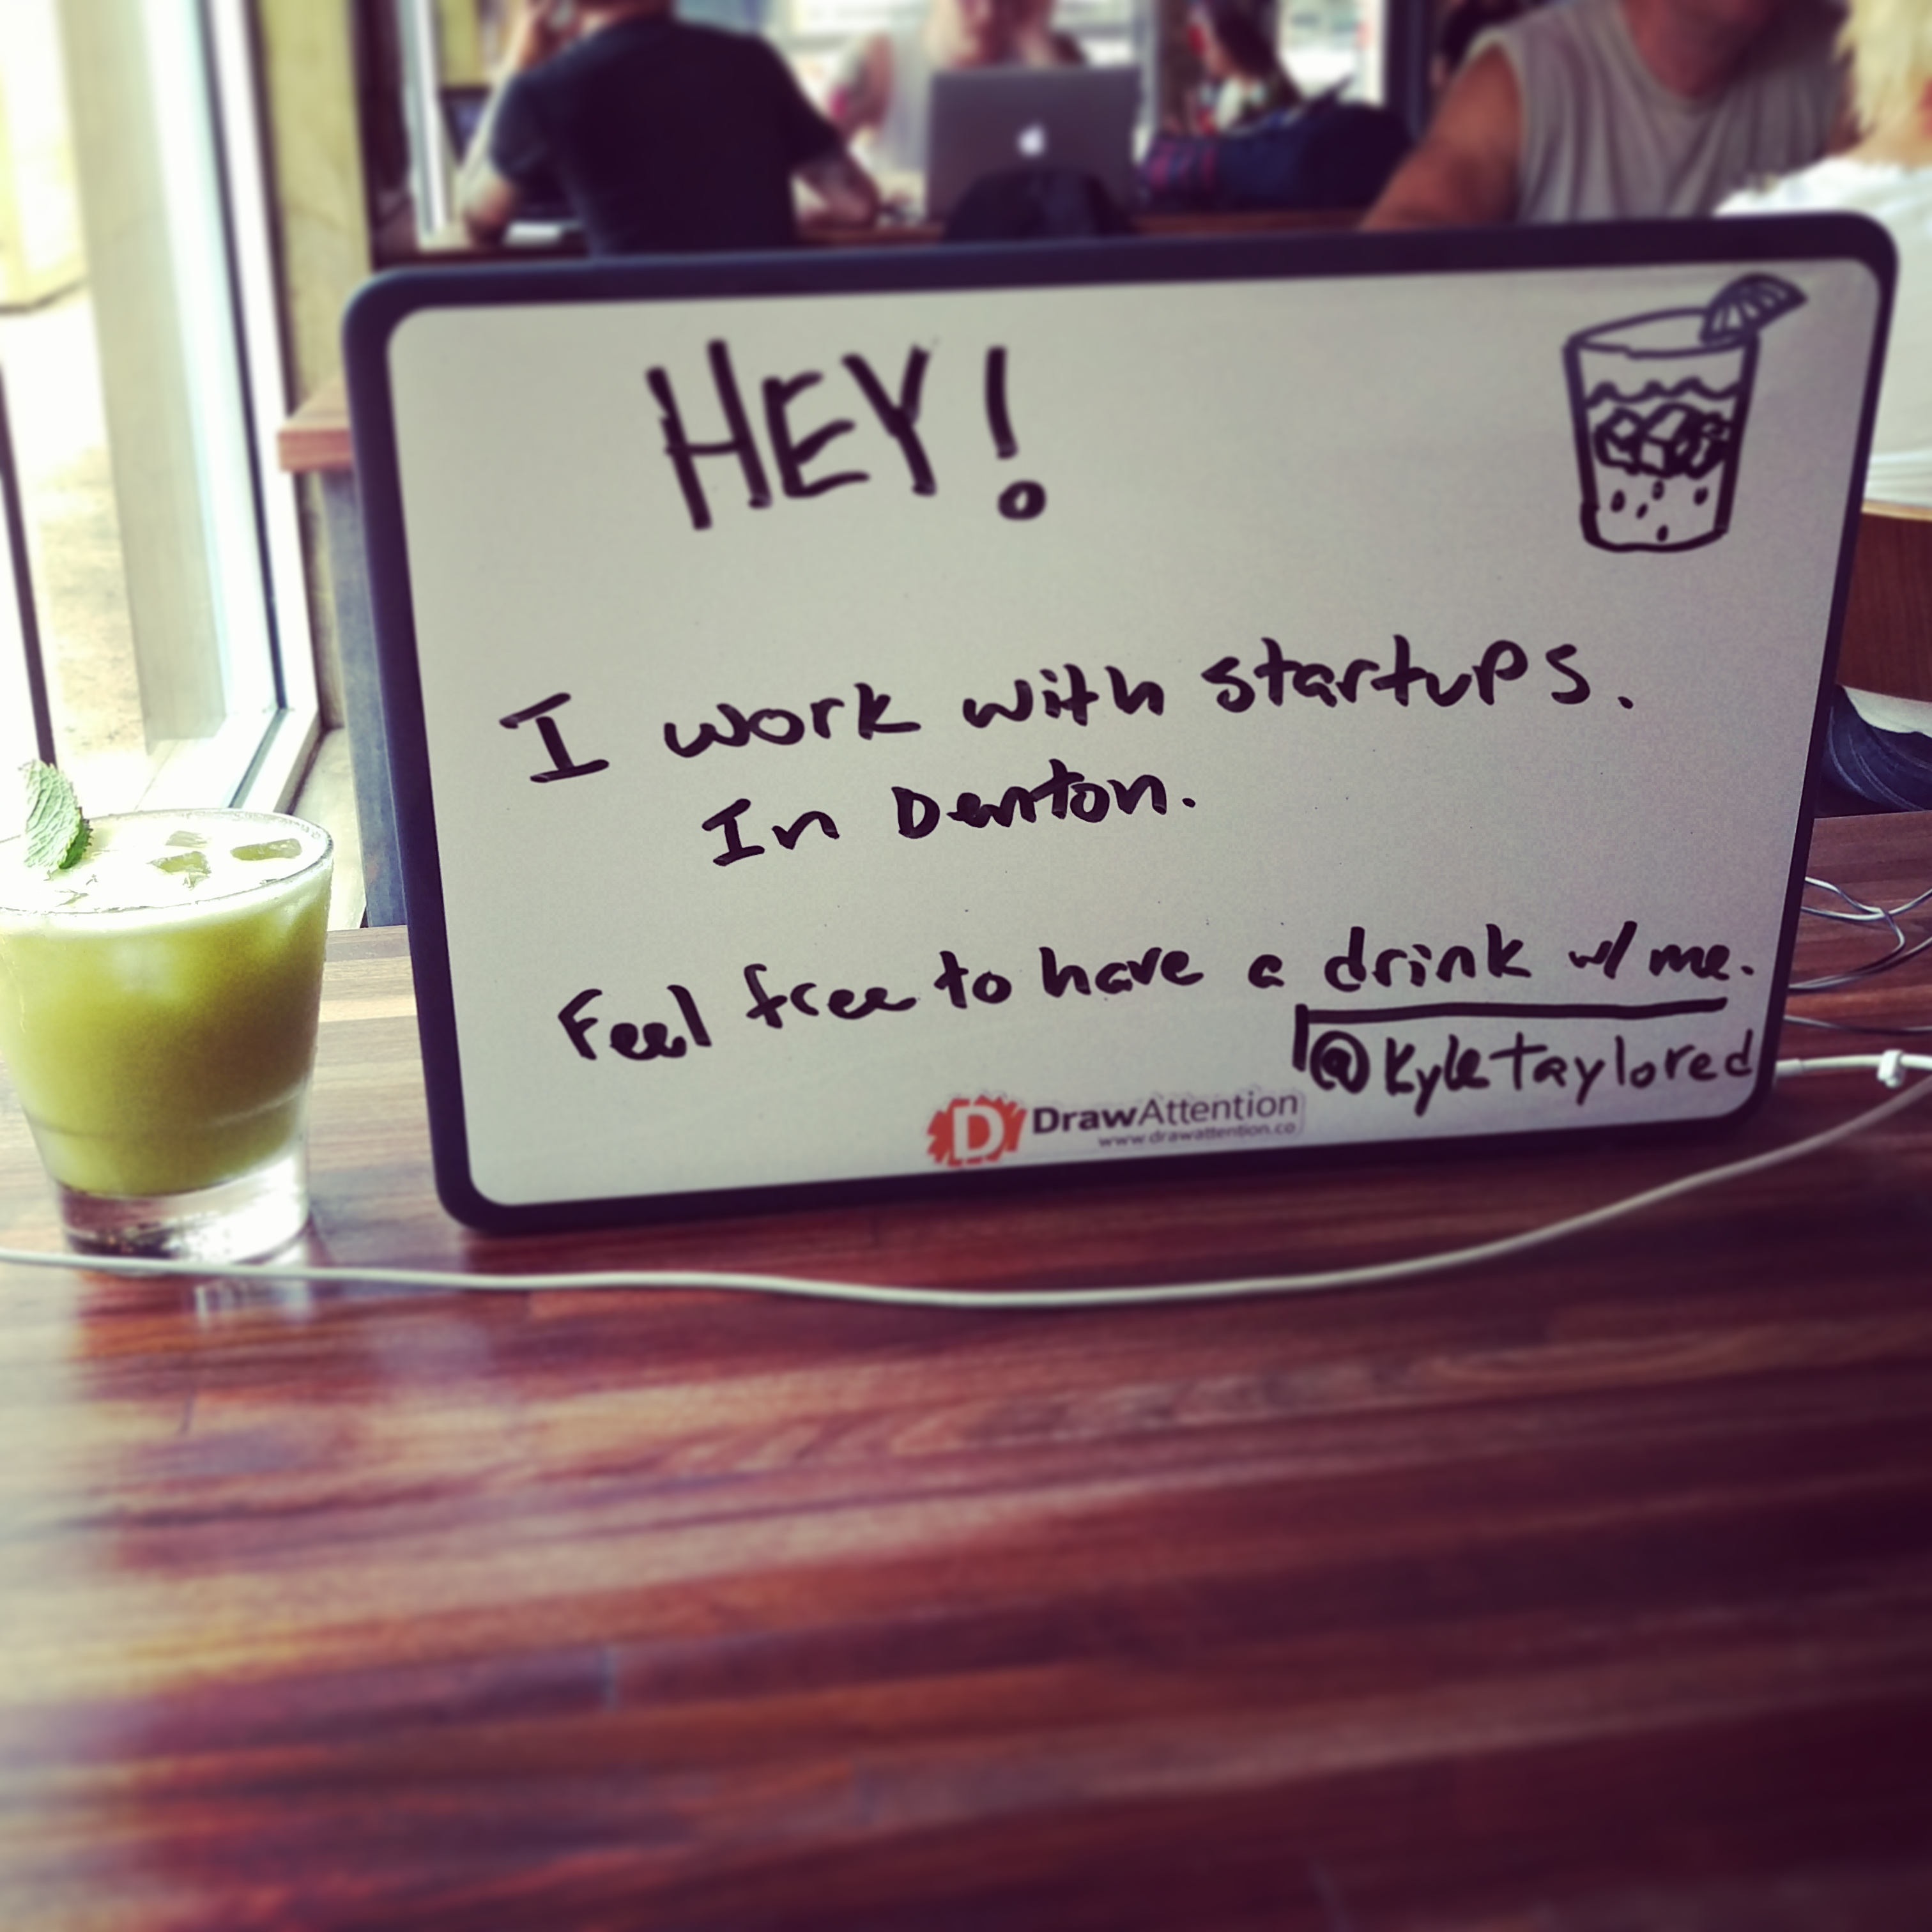 HEY!
I work with startups.
In Denton.
Feel free to have a drink w/ me.
@Kyletaylored
D DrawAttention
www.drawattention.co